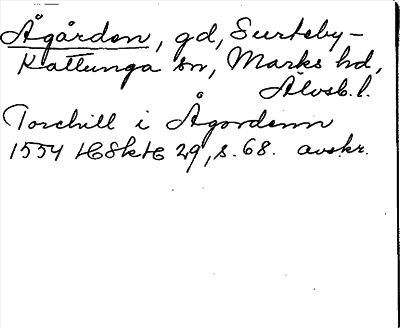 Ågården, gd, Surteby-
Kattunga sn, Marks hd,
Älvsb. l.
Torchill i Ågordenn
1554 HSH 29, s. 68. avskr.